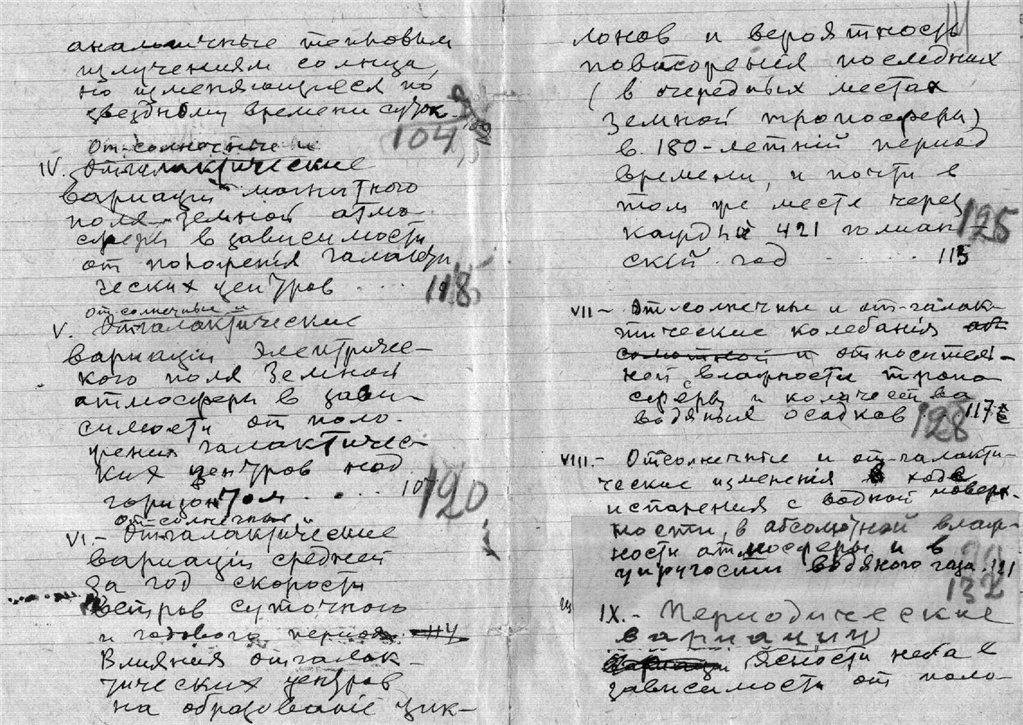 аналогичные тепловым
излучениям солнца,
но изменяющиеся по
звездному времени суток.
104 109
От-солнечные и
IV. Отгалактические
вариации магнитного
поля земной атмо-
сферы в зависимости
от положения галакти-
ческих центров . . . . 118
От-солнечные и
V. Отгалактические
вариации электриче-
ского поля Земной
атмосферы в зави-
симости от поло-
жения галактичес-
ких центров над
горизонтом . . . . 107 120
От-солнечныя
VI.- Отгалактические
вариации средней
за год скорости
ветров суточного
и годового периода 114
Влияния отгалак-
тических центров
на образование цик-
лонов и вероятность
повторения последних
(в очередных местах
земной тропосферы)
в 180-летний период
времени, и почти в
том же месте через
каждый 421 юлиан- 125
ский год . . . . . 115
VII- От-солнечные и от-галак-
тические колебания
относитель-
ной влажности тропо
сферы и количества
водяных осадков 117 128
VIII.- Отсолнечные и от-галакти-
ческие изменения в ходе
испарения с водной поверх-
ности, в абсолютной влаж-
ности атмосферы и в
упругости водяного газа. 121
132
IX.- Периодические
вариации
ясности неба в
зависимости от поло-